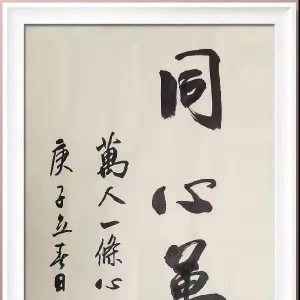 同心
萬人一條心
庚子立春日